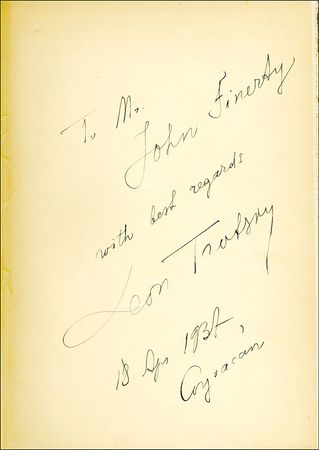 To Mr.
John Finerty
with best regards
Leon Trotsky
18 Apr 1937,
Coyoacan